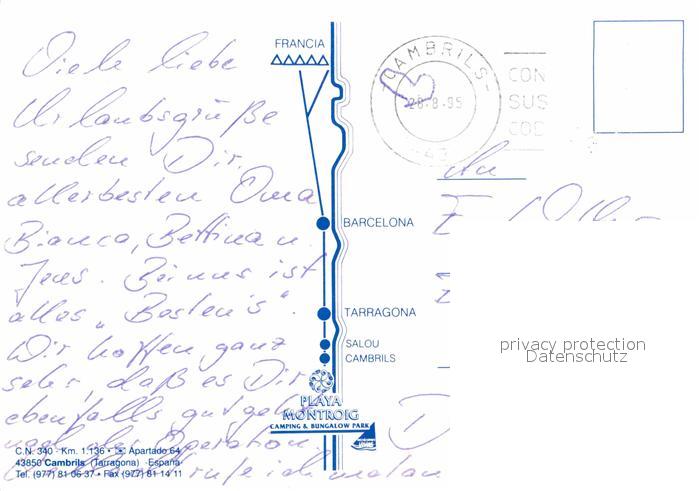 Viele liebe
Urlaubsgrüße
senden Dir,
allerbesten Oma
Bianca, Bettina u.
Jens. Bei uns ist
alles „Bestens“.
Wir hoffen ganz
sehr, daß es Dir
ebenfalls gut geht
nach der Operation.
rufe ich mal an
FRANCIA
BARCELONA
TARRAGONA
SALOU
CAMBRILS
PLAYA
MONTROIG
CAMPING & BUNGALOW PARK
C.N. 340 · Km. 1.136 · Apartado 64
43850 Cambrils (Tarragona) · España
Tel. (977) 81 06 37 · Fax (977) 81 14 11
CAMBRILS
28-8-95
43
CON
SUS
COD
An
privacy protection
Datenschutz